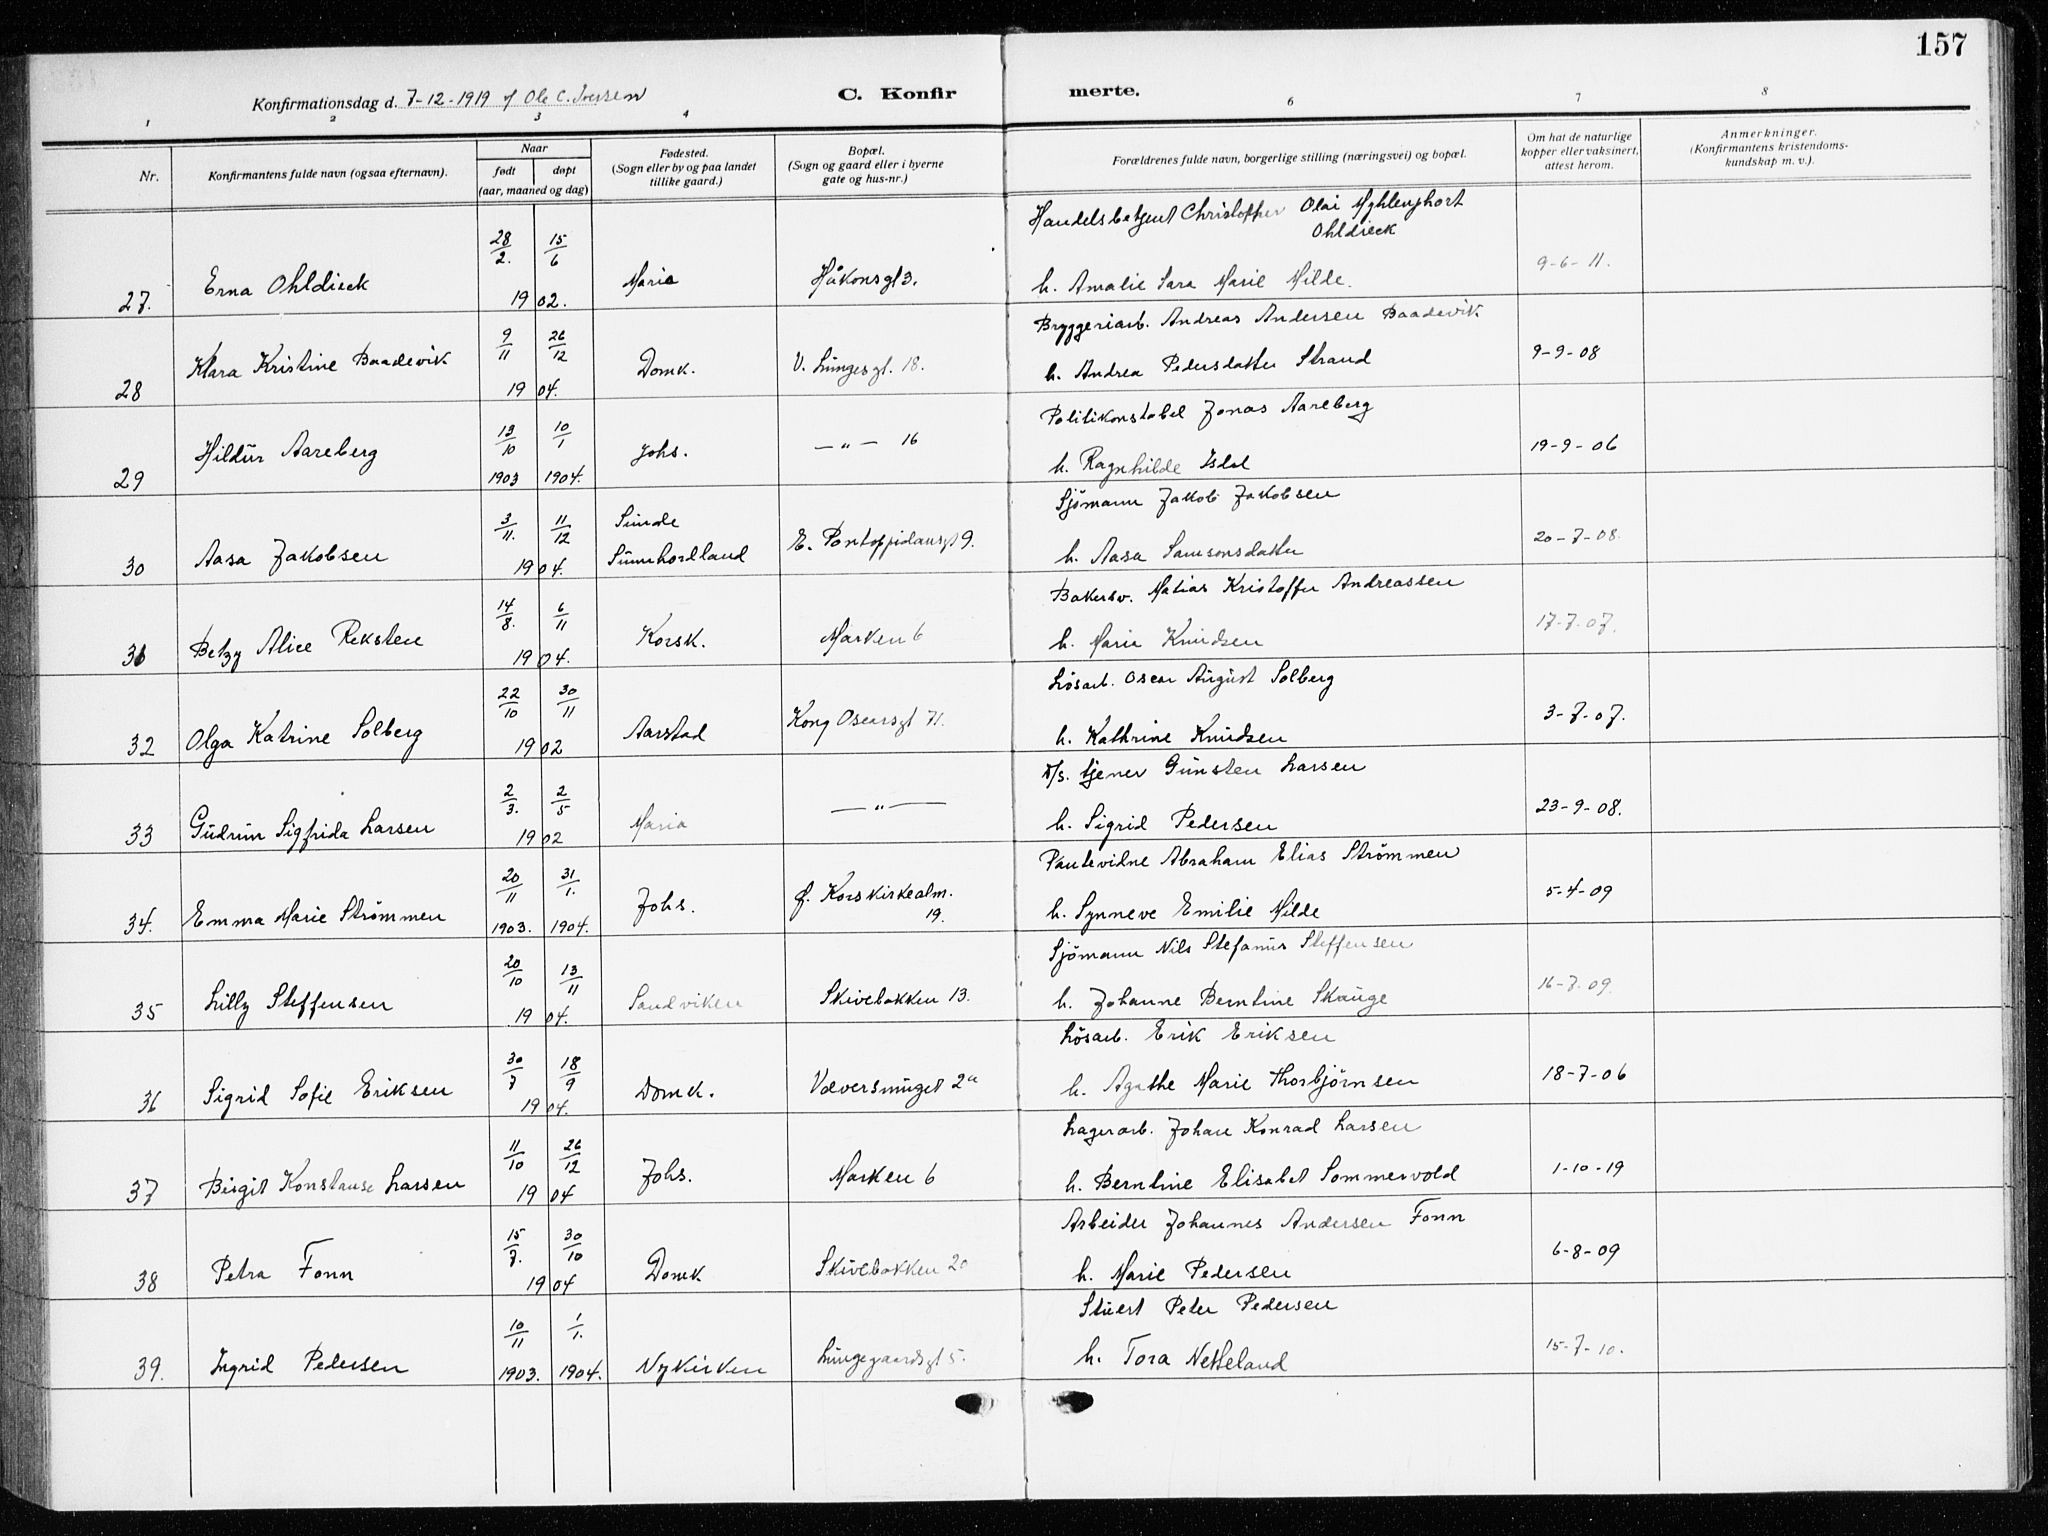 157
Konfirmationsdag d. 7-12-1919 v/ Ole C. Iversen C. Konfir merte.
1 2 3 4 6 7 8
Nr. Konfirmantens fulde navn (ogsaa efternavn). Naar født døpt (aar, maaned og dag) Fødested. (Sogn eller by og paa landet tillike gaard.) Bopæl. (Sogn og gaard eller i byerne gate og hus-nr.) Forældrenes fulde navn, borgerlige stilling (næringsvei) og bopæl. Om hat de naturlige kopper eller vaksinert, attest herom. Anmerkninger. (Konfirmantens kristendoms-kundskap m. v.).
Handelsbetjent Christopher Olai
Ohldieck
27. Erna Ohldieck 28/2. 15/6 1902. Maria Håkonsgt 3. h. Amalie Sara Marie Milde. 9-6-11.
Bryggeriarb. Andreas Andersen Baadevik
28 Klara Kristine Baadevik 9/11 26/12 1904. Domk. V. Lungesgt. 18. h. Andrea Pedersdatter Strand 9-9-08
Politikonstabel Jonas Aareberg
29 Hildur Aareberg 13/10 1903 10/1 1904. Johs. — „ — 16 h. Ragnhilde Isdal 19-9-06
Sjømann Jakob Jakobsen
30 Aasa Jakobsen 3/11. 11/12 1904. Sunde Sunnhordland E. Pontoppidansgt 9. h. Aasa Samsonsdatter 20-7-08.
Bakersv. Matias Kristoffer Andreassen
31 Betzy Alice Reksten 14/8. 6/11 1904. Korsk. Marken 6 h. Marie Knudsen 17-7-07.
Løsarb. Oscar August Solberg
32 Olga Katrine Solberg 22/10 30/11 1902 Aarstad Kong Oscarsgt 71. h. Kathrine Knudsen 3-7-07.
D/s. tjener Gunsten Larsen
33 Gudrun Sigfrida Larsen 2/3. 2/5 1902 Maria — „ — h. Sigrid Pedersen 23-9-08.
Pantevidne Abraham Elias Strømmen
34. Emma Marie Strømmen 20/11 1903. 31/1. 1904. Johs. Ø. Korskirkealm. 19. h. Synneve Emilie Milde 5-4-09
Sjømann Nils Stefanus Steffensen
35 Lilly Steffensen 20/10 13/11 1904. Sandviken Skivebakken 13. h. Johanne Berntine Skauge 16-7-09.
Løsarb. Erik Eriksen
36 Sigrid Sofie Eriksen 30/7 18/9 1904. Domk. Væversmuget 2a h. Agathe Marie Thorbjørnsen 18-7-06
Lagerarb. Johan Konrad Larsen
37 Birgit Konstanse Larsen 11/10 26/12 1904 Johs. Marken 6 h. Berntine Elisabet Sommervold 1-10-19
Arbeider Johannes Andersen Fonn
38 Petra Fonn 15/7. 30/10 1904 Domk Skivebakken 20 h. Marie Pedersen 6-8-09
Stuert Peter Pedersen
39. Ingrid Pedersen 10/11 1903. 1/1. 1904. Nykirken Lungegaardsgt 5. h. Tora Netteland 15-7-10.